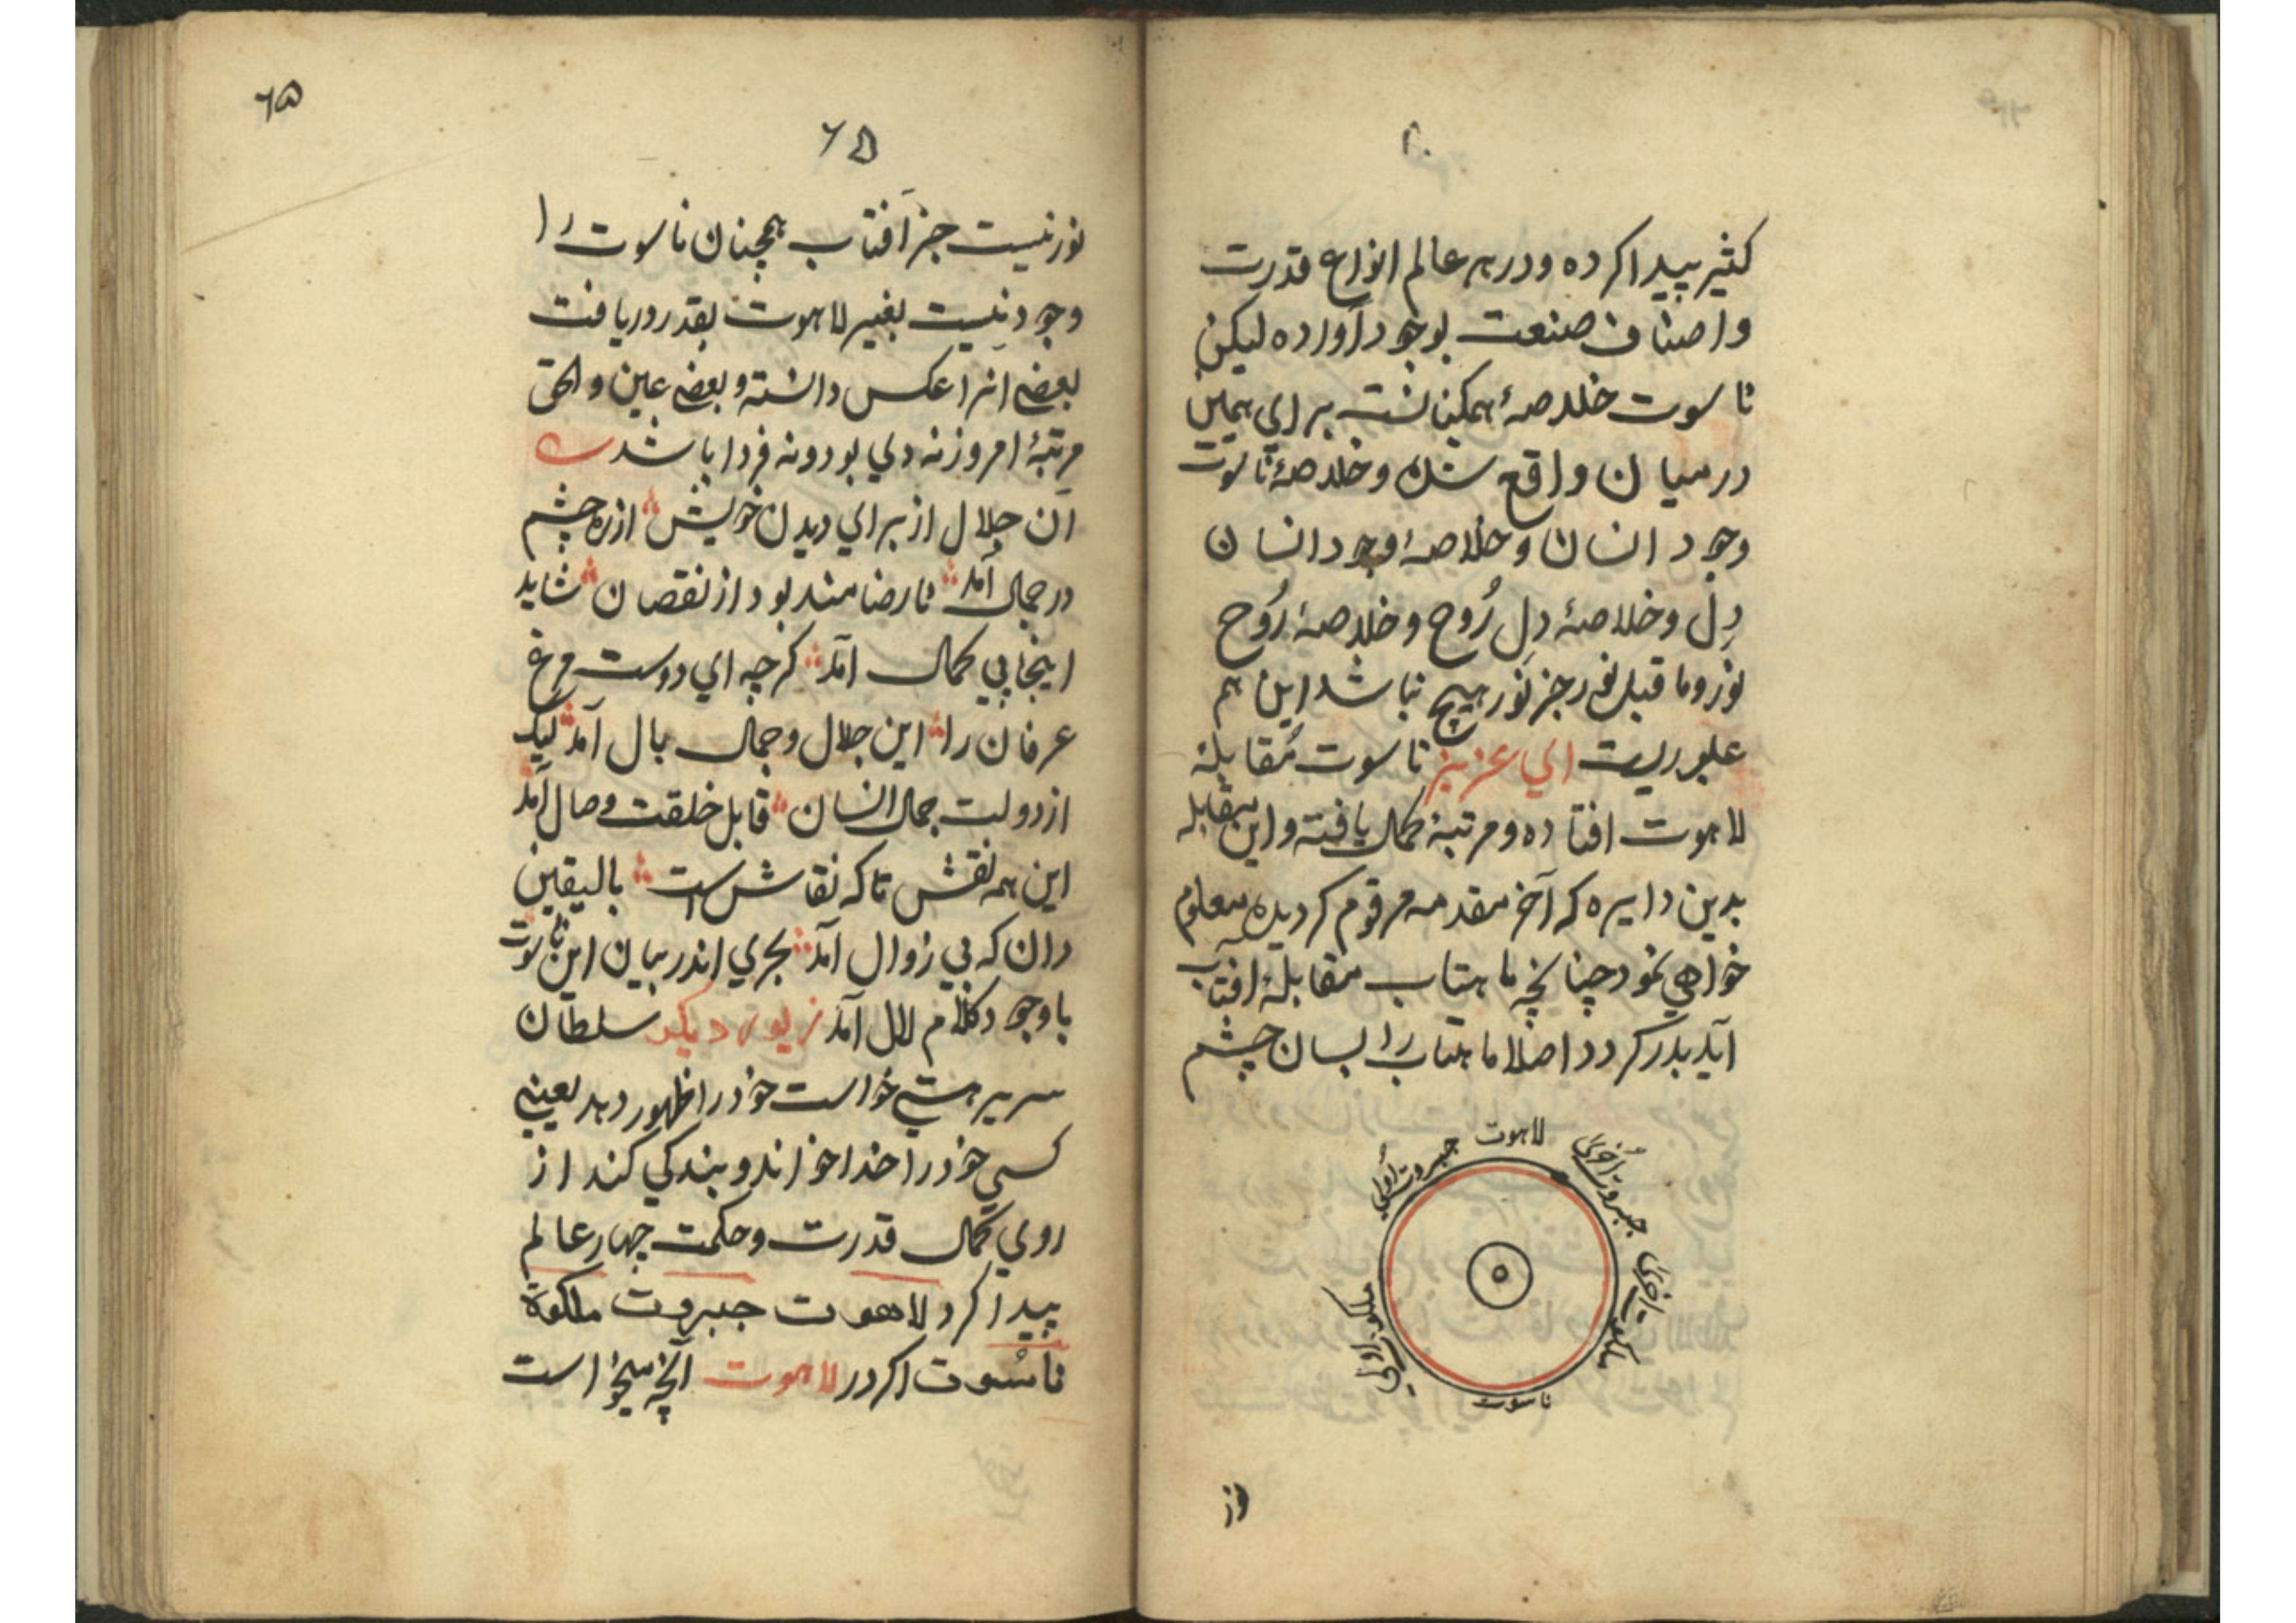 کثیر پیدا کرده و در هر عالم انواع قدرت
و اصناف صنعت بوجود آورده لیکن
ناسوت خلاصهٔ همکنانست برای همین
درمیان واقع شده و خلاصهٔ ناسوت
وجود انسان و خلاصهٔ وجود انسان
دِل و خلاصهٔ دِل رُوح و خلاصهٔ رُوح
نور و ما قبل نور جز نور هیچ نباشد این هم
ای عزیز ناسوت مُقابلهٔ
لاهوت افتاده و مرتبهٔ کمال یافته و این مقابله
بدین دایره که آخر مقدمه مرقوم کردیده معلوم
خواهی نمود چنانچه ماهتاب مقابلهٔ آفتاب
آید بدر کردد اصلا ماهتاب را بسان چشم
لاهوت
جبروت اُخریٰ
جبروت اُولیٰ
ملکوت اخریٰ
ملکوت اولیٰ
ناسوت
نور
٦٥
٦٥
نور نیست جز آفتاب همچنان ناسوت را
وجود نیست بغیر لاهوت بقدر دریافت
بعضی آنرا عکس دانسته و بعضی عین والحق
مرتبهٔ امروز نه دی بود و نه فردا باشد
آن جلال از برای دیدن خویش از ره چشم
در جمال آمد نارضامند بود از نقصان شاید
اینجا پی کمال آمد کرچه ای دوست مرغ
عرفان را این جلال و جمال بال آمد لیک
از دولت جمال انسان قابل خلقت وصال آمد
این همه نقش تا که نقاش است بالیقین
دان که بی زوال آمد بحری اندر بیان این ناسوت
باوجود کلام لال آمد زیور دیکر سلطان
سریر هستی خواست خود را ظهور دهد یعنی
کسی خود را خدا خواند و بندکی کند از
روی کمال قدرت و حکمت چهار عالم
پیدا کرد لاهوت جبروت ملکوة
ناسُوت اکر در لاهوت آنچه میخواست